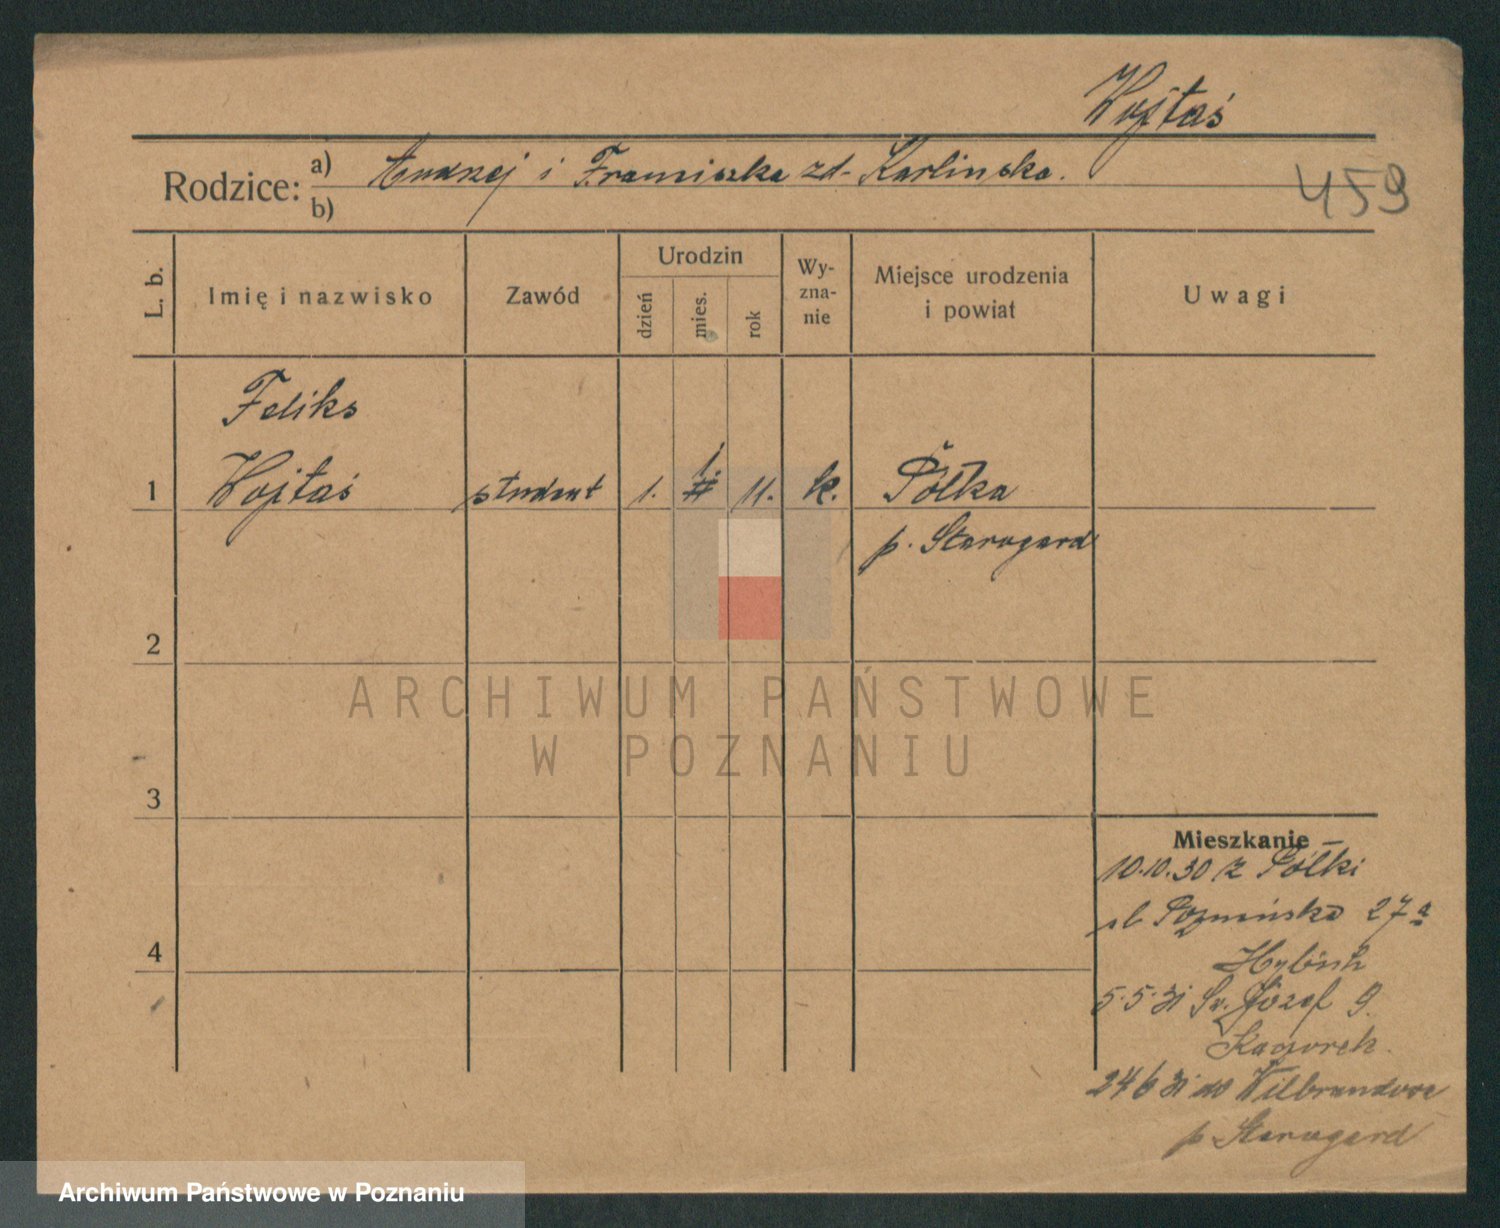 Wojtaś
Rodzice: a) Andrzej i Franciszka zd. Karlińska.
459
b)
L. b.
Imię i nazwisko
Zawód
Urodzin
dzień
mies.
rok
Wy-
zna-
nie
Miejsce urodzenia
i powiat
Uwagi
Feliks
1 Wojtaś student 1. 11. k. Półka
p. Starogard
2
ARCHIWUM PAŃSTWOWE
W POZNANIU
3
Mieszkanie
10.10.30 z Półki
ul Poznańska 27a
4
5.5.31 Św. Józef 9.
24/6 31 do Wilbrandowa
p. Starogard
Archiwum Państwowe w Poznaniu